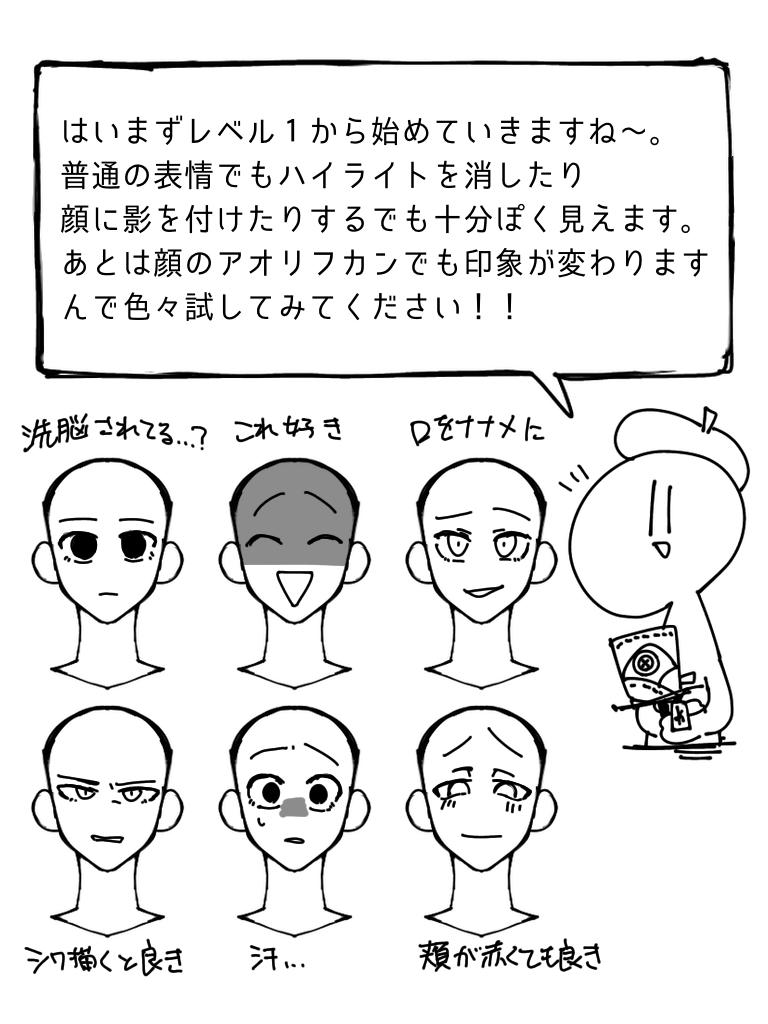 はいまずレベル１から始めていきますね～。
普通の表情でもハイライトを消したり
顔に影を付けたりするでも十分ぽく見えます。
あとは顔のアオリフカンでも印象が変わります
んで色々試してみてください！！
洗脳されてる...?
これ好き
口をナナメに
シワ描くと良き
汗...
頬が赤くても良き